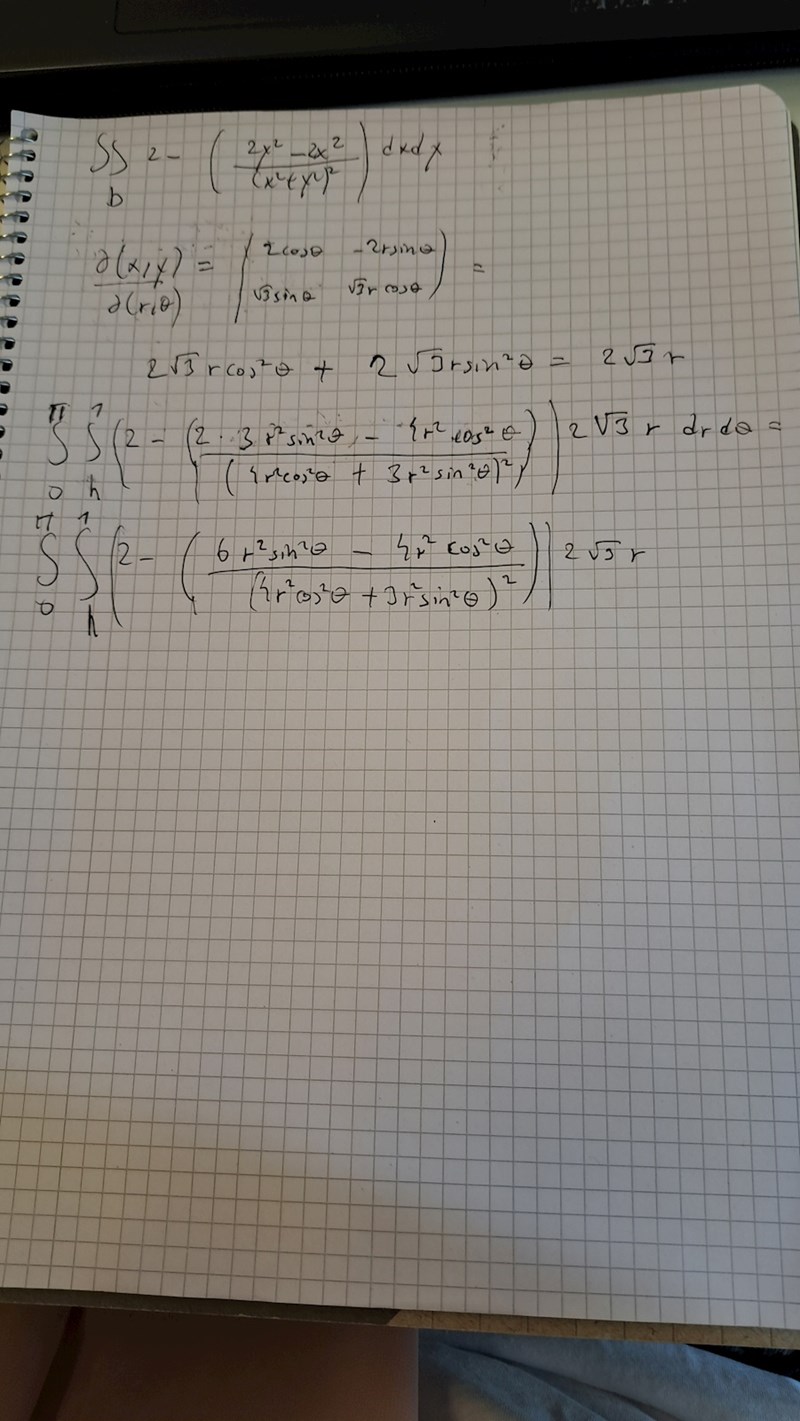 ∬_D 2 - ( (2y² - 2x²) / (x²+y²)² ) dxdy
∂(x,y)/∂(r,θ) = | 2cosθ  -2rsinθ ; √3 sinθ  √3 r cosθ | =
2√3 r cos²θ + 2√3 r sin²θ = 2√3 r
∫_0^π ∫_h^1 ( 2 - ( (2·3 r² sin²θ - 4r² cos²θ) / (4r²cos²θ + 3r² sin²θ)² ) ) 2√3 r dr dθ =
∫_0^π ∫_h^1 ( 2 - ( (6 r² sin²θ - 4r² cos²θ) / (4r²cos²θ + 3r² sin²θ)² ) ) 2√3 r